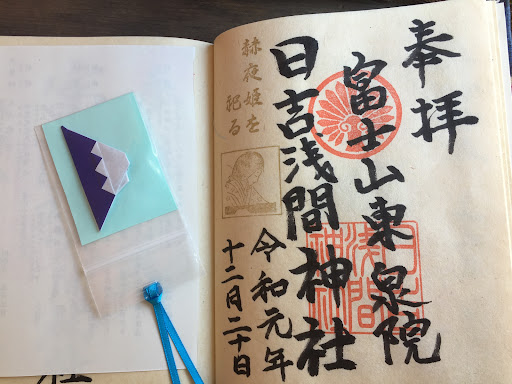 奉拝
富士山東泉院
日吉浅間神社
日吉
浅間
神社
令和元年
十二月二十日
赫夜姫を
祀る